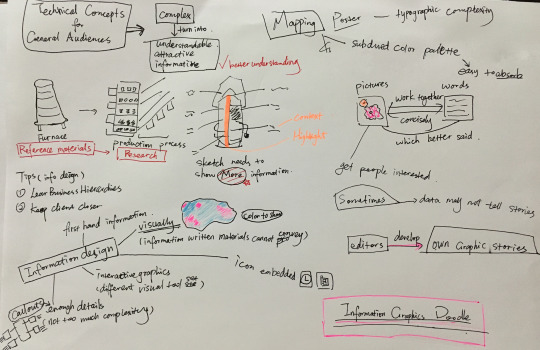 Technical Concepts
for
General Audiences
Complex
turn into
understandable
attractive
informative
better understanding
Mapping Poster — typographic complexity
subdued color palette
easy to absorb
pictures
words
work together
concisely
which better said.
get people interested.
Furnace
production process
Reference materials
Research
context
Highlight
sketch needs to
show More information.
Tips (info design)
① Lear Business Hierarchies
② Keep client closer
Sometimes
data may not tell stories
editors
develop
own Graphic stories
first hand information.
visually
Color to show
(information written materials cannot convey)
Information design
interactive graphics
(different visual tool
icon embedded
Callouts
enough details
(not too much complexity)
Information Graphics Doodle